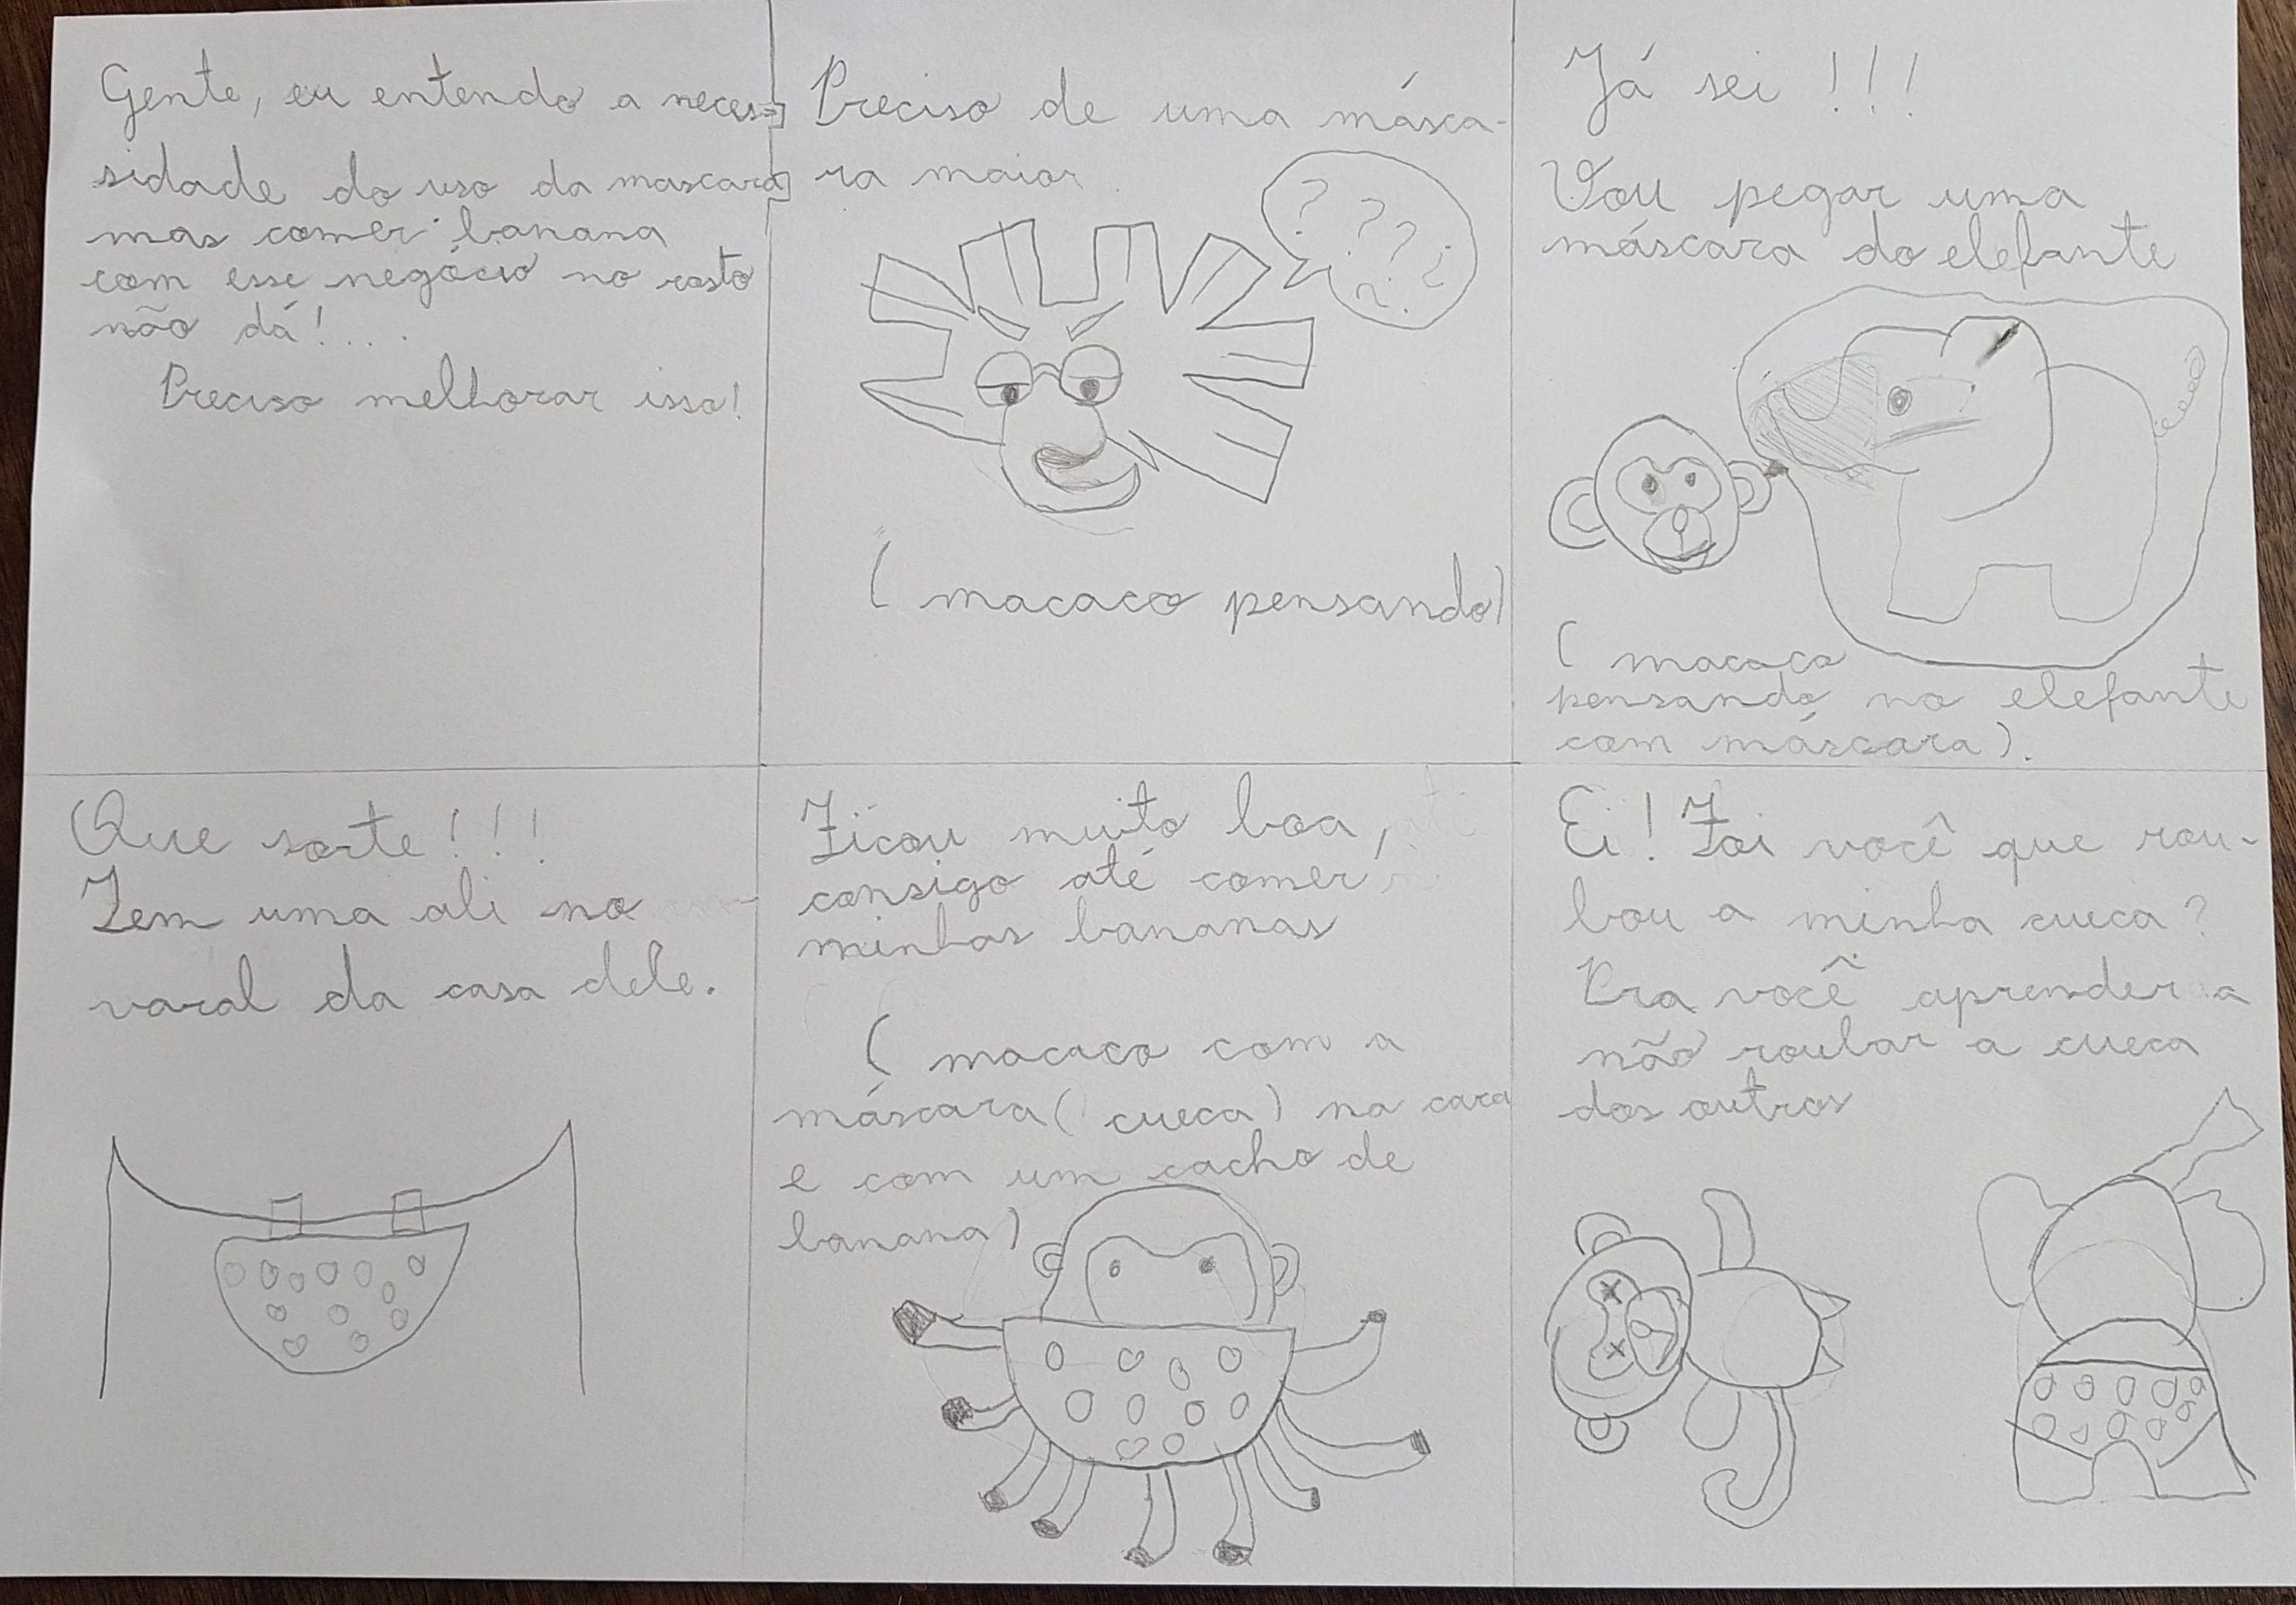 Gente, eu entendo a neces-
sidade do uso da mascara
mas comer banana
com esse negócio no rosto
não dá!...
Preciso melhorar isso!
Preciso de uma másca-
ra maior
? ? ? ? ?
(macaco pensando)
Já sei !!!
Vou pegar uma
máscara do elefante
(macaco
pensando no elefante
com máscara).
Que sorte!!!
Tem uma ali no
varal da casa dele.
Ficou muito boa,
consigo até comer
minhas bananas
(macaco com a
máscara (cueca) na cara
e com um cacho de
banana)
Ei! Foi você que rou-
bou a minha cueca?
Pra você aprender a
não roubar a cueca
dos outros